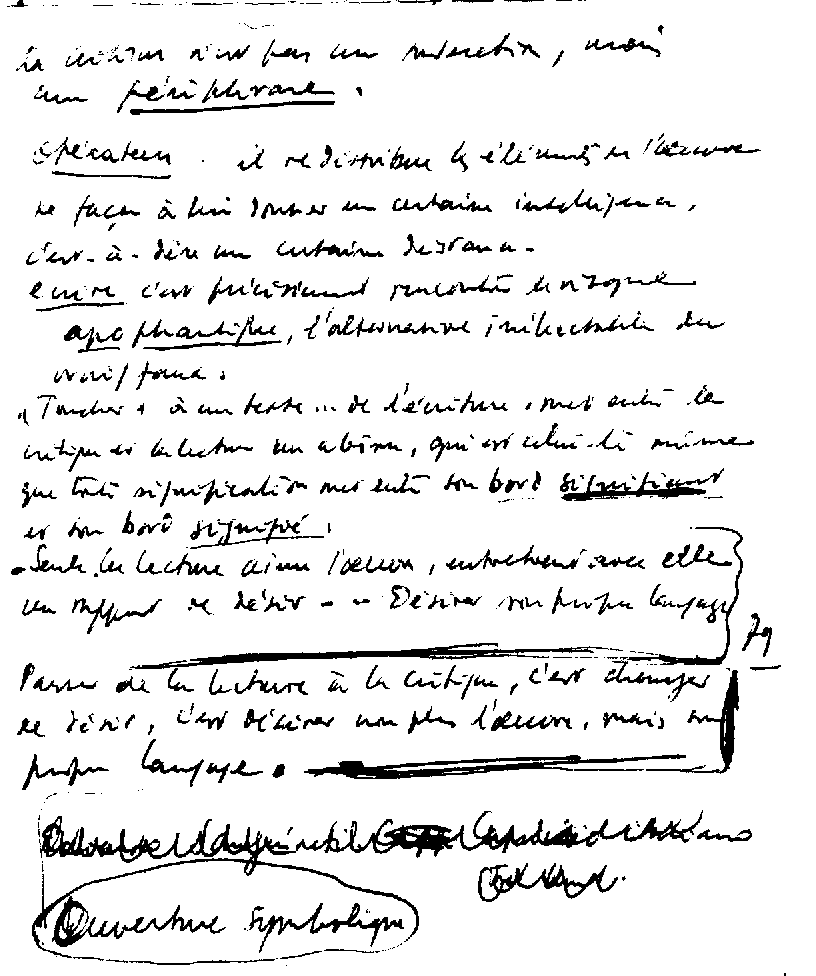 la critique n'est pas une traduction, mais
une périphrase.
Opérateur. il redistribue les éléments de l'oeuvre
de façon à lui donner une certaine intelligence,
c'est-à-dire une certaine distance.
écrire c'est précisément rencontrer le risque
apophantique, l'alternative inéluctable du
vrai/faux.
"Toucher" à un texte... de l'écriture, met entre la
critique et la lecture un abîme, qui est celui-là même
que toute signification met entre son bord signifiant
et son bord signifié.
Seule la lecture aime l'oeuvre, entretient avec elle
un rapport de désir - - Désirer son propre langage
79
Passer de la lecture à la critique, c'est changer
de désir, c'est désirer non plus l'oeuvre, mais son
propre langage.
Ouverture symbolique